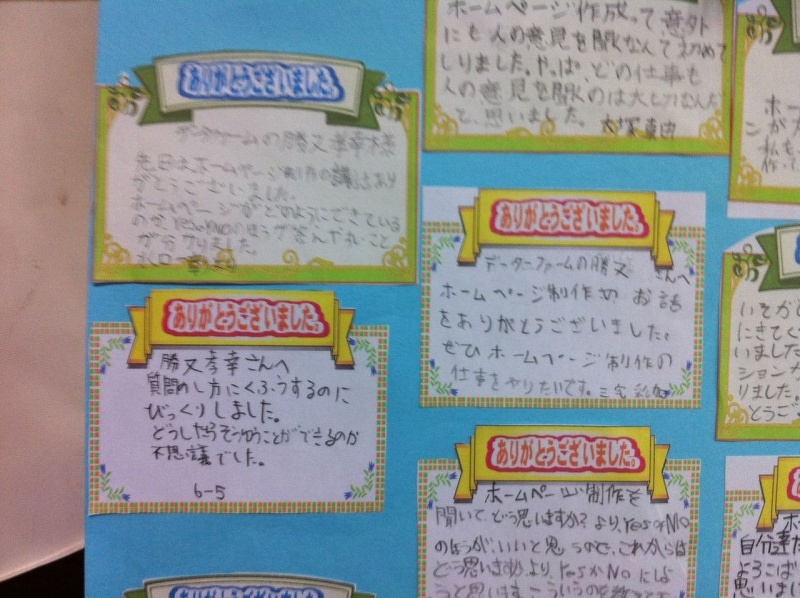 ありがとうございました。
データファームの勝又孝幸様
先日はホームページ制作の講話あり
がとうございました。
ホームページがどのようにできている
のか、YesかNoのほうが答えやすいこと
が分かりました。
ありがとうございました。
勝又孝幸さんへ
質問のし方にくふうするのに
びっくりしました。
どうしたらそうゆうことができるのか
不思議でした。
6-5
ホームページ作成って意外
にも人の意見を聞くなんて初めて
しりました。やっぱ、どの仕事も
人の意見を聞くのは大切なんだ
と、思いました。
ありがとうございました。
データファームの勝又 さんへ
ホームページ制作の お話
をありがとうございました。
ぜひ ホームページ制作の
仕事をやりたいです。三宅
ありがとうございました。
ホームページ制作を
聞いて、どう思いますか?より、YesかNo
のほうが、いいと思うので、これからは
どう思いますか、より、YesかNoにしよ
うと思います。こういうのを教えて
ホー
私も
作っ
いそがし
にきてく
いました
ションカ
りました。
とうご
自分達だ
よろこば
思いまし